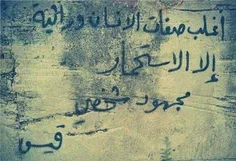 أغلب صفات الانسان وراثية
إلا الاستحمار
مجهود شخصي
قيس